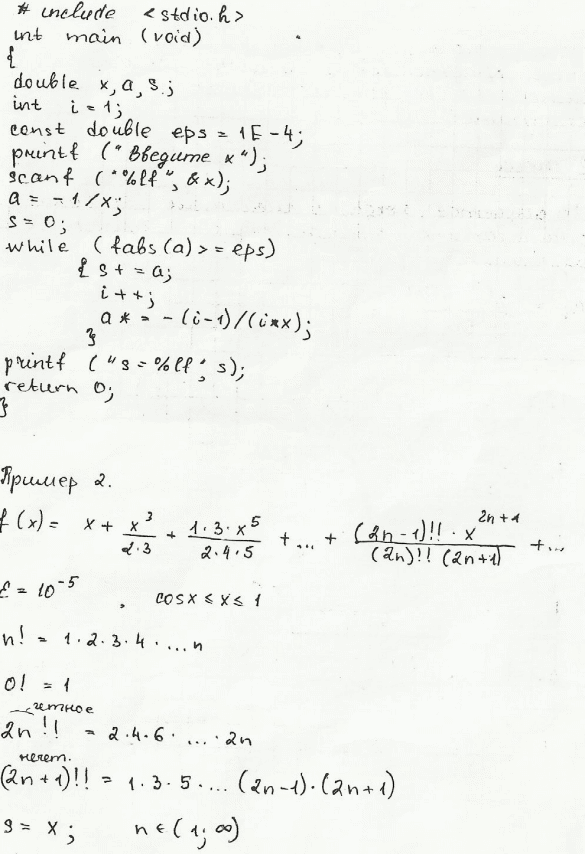 # include <stdio.h>
int main (void)
{
double x, a, s;
int i = 1;
const double eps = 1E-4;
printf ("Введите x");
scanf ("%lf", &x);
a = -1/x;
s = 0;
while (fabs(a) >= eps)
{ s += a;
i++;
a *= -(i-1)/(i*x);
}
printf ("s = %lf", s);
return 0;
}
Пример 2.
f(x) = x + x^3/(2·3) + (1·3·x^5)/(2·4·5) + ... + ((2n-1)!! · x^(2n+1))/((2n)!! (2n+1)) + ...
ε = 10^-5 , cosx ≤ x ≤ 1
n! = 1·2·3·4· ... n
0! = 1
четное
2n!! = 2·4·6· ... · 2n
нечет.
(2n+1)!! = 1·3·5· ... (2n-1)·(2n+1)
s = x; n ∈ (1; ∞)